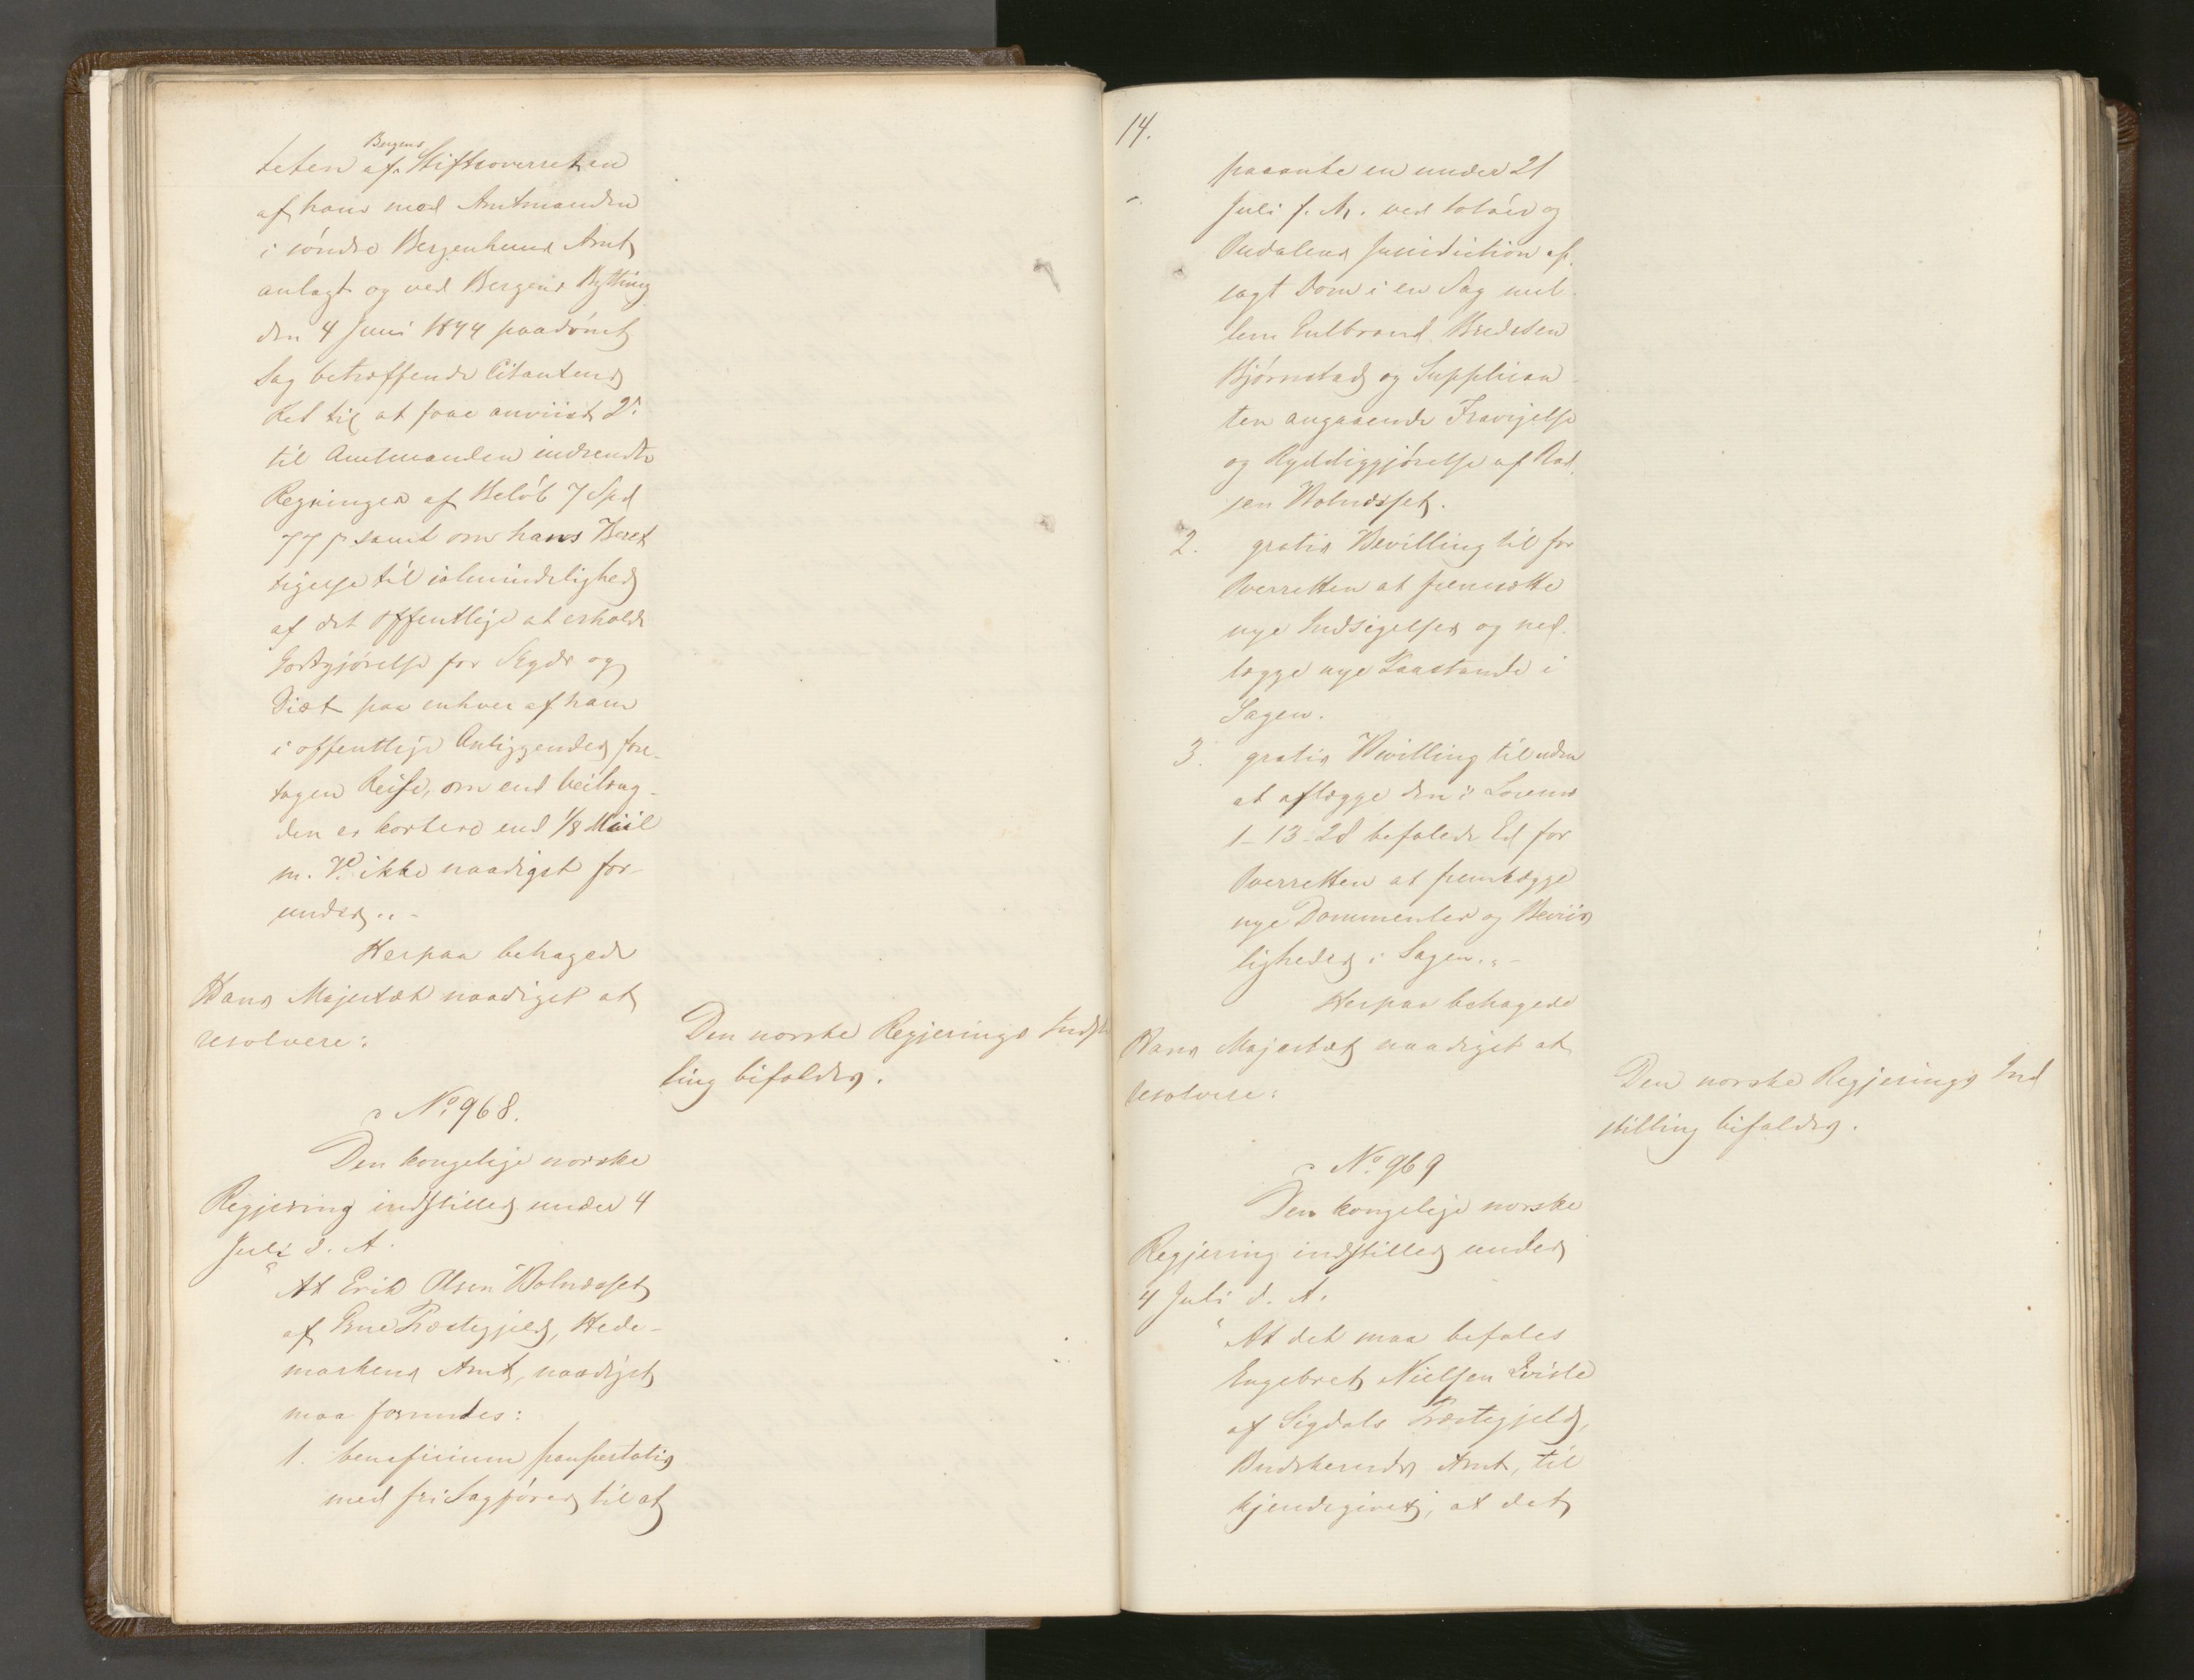 teten af Bergens Stiftsoverretten
af ham mod Amtmanden
i söndre Bergenhuus Amt
anlagt og ved Bergens Bything
den 4 Juni 1844 paadömt
Sag betræffende Citantens
Ret til at faae anviist 2de
til Amtmanden indsendte
Regninger af Belöb 7 Spd
77 ß samt om hans Beret
tigelse til i almindelighed
af det offentlige at erholde
Godtgjörelse for Skyds og
Diæt paa enhver af ham
i offentlige Anliggender fore-
tagen Reise, om end Veilæng-
den er kortere end 1/8 Miil
m. V. ikke naadigst for-
undes.
Herpaa behagede
Hans Majestæt naadigst at
resolvere:
Den norske Regjerings Indstil
ling bifaldes.
No. 968.
Den kongelige norske
Regjering indstiller under 4
Juli d. A.
At Erik Olsen Holmdsset
af Præstegjeld, Hede-
markens Amt, naadigst
maa forundes:
1. beneficium paupertatis
med fri Sagförer til at
14.
paaanke en under 21
Juli f. A. ved Solöer og
Oudalens Jurisdiction af-
sagt Dom i en Sag mel-
lem Gulbrand Bredesen
Björnstad og Supplican-
ten angaaende Fravigelse
og Ryddiggjörelse af Plad-
sen Holmdsset.
2. gratis Bevilling til for
Overretten at fremsætte
nye Indsigelser og ned-
lægge nye Paastande i
Sagen.
3. gratis Bevilling til uden
at aflægge den i Lovens
1-13-28 befalede Ed for
Overretten at fremlægge
nye Documenter og Beviis
ligheder i Sagen.
Herpaa behagede
Hans Majestæt naadigst at
resolvere:
Den norske Regjerings Ind
stilling bifaldes.
No. 969
Den kongelige norske
Regjering indstiller under
4 Juli d. A.
At det maa befales
Engebret Nielsen Qvisle
af Sigdals Præstegjeld,
Buskeruds Amt, til
kjendegivet, at det